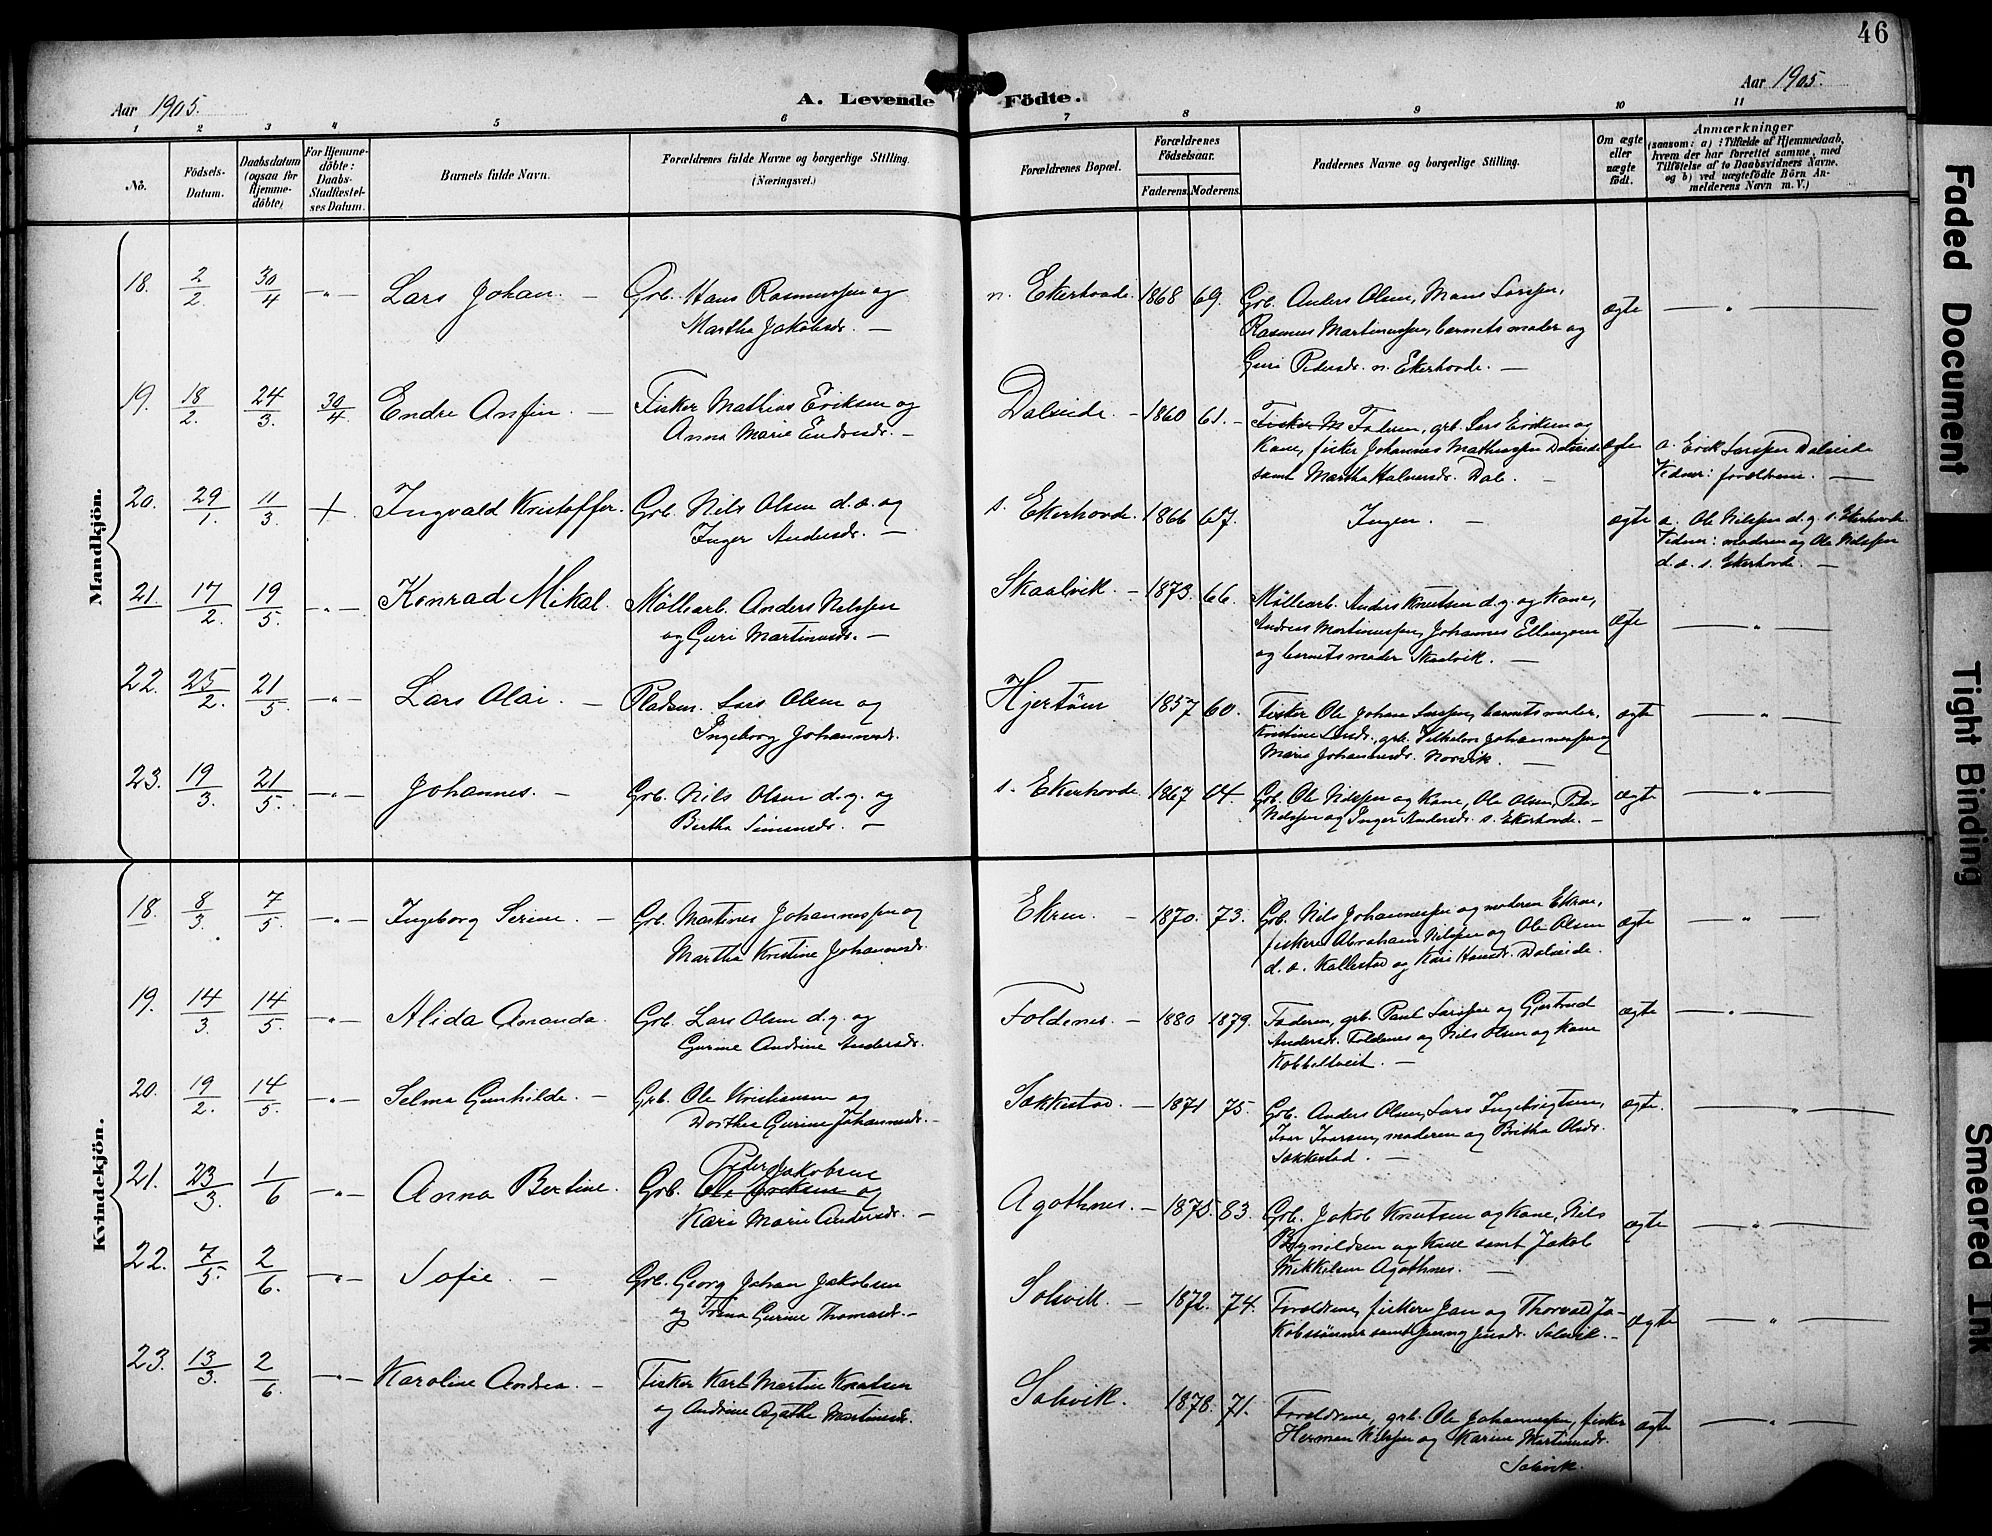 46
Aar 1905.
A. Levende Födte.
Aar 1905.
1 2 3 4 5 6 7 8 9 10 11
No.
Födsels-
Datum.
Daabsdatum
(ogsaa for
Hjemme-
döbte)
For Hjemme-
döbte:
Daabs-
Stadfæstel-
ses Datum.
Barnets fulde Navn.
Forældrenes fulde Navne og borgerlige Stilling.
(Næringsvei.)
Forældrenes Bopæl.
Forældrenes
Födselsaar.
Faderens. Moderens.
Faddernes Navne og borgerlige Stilling.
Om ægte
eller
uægte
födt.
Anmærkninger
(saasom: a) i Tilfælde af Hjemmedaab,
hvem der har forrettet samme, med
Tilföielse af to Daabsvidners Navne.
og b) ved uægtefödte Börn An-
melderens Navn m. V.)
Mandkjön.
18. 2/2 30/4 -"- Lars Johan. — Grb. Hans Rasmussen og
Martha Jakobsdr. —
n. Ekerhovde. 1868 69. Grb. Anders Olsen, Mons Larssen,
Rasmus Martinussen, barnets moder og
Guri Pedersdr. n. Ekerhovde. —
ægte — " —
19. 18/2. 24/3. 30/4 Endre Anfin. — Fisker Mathias Eriksen og
Anna Marie Endresdr. —
Dalseide. — 1860 61. — Fisker M Faderen, grb. Lars Eriksen og
Kone, fisker Johannes Mathiassen Dalseide
samt Martha Halvorsdr. Dale. —
ægte a. Erik Larssen Dalseide
Vidner: forældrene. —
20. 29/1. 11/3. + Ingvald Kristoffer. Grb. Nils Olsen d.æ. og
Inger Andersdr. —
s. Ekerhovde. 1866 67. Ingen. — ægte a. Ole Nilssen d.y. s. Ekerhovde.
Vidner: moderen og Ole Nilssen
d.æ. s. Ekerhovde. —
21. 17/2. 19/5. -"- Konrad Mikal. Möllearb. Anders Nilssen
og Guri Martinusdr. —
Skaalvik. — 1873. 66. Möllearb. Anders Knutsen d.y. og Kone,
Andreas Martinussen, Johannes Ellingsen
og barnets moder Skaalvik. —
ægte — " —
22. 25/2. 21/5. -"- Lars Olai. — Pladsm. Lars Olsen og
Ingeborg Johannesdr.
Hjertöen 1857 60. Fisker Ole Johan Larssen, barnets moder,
Kristine Larsdr., grb. Vilhelm Johannessen og
Marie Johannesdr. Norvik. —
ægte — " —
23. 19/3. 21/5. -"- Johannes. — Grb. Nils Olsen d.y. og
Bertha Simonsdr. —
s. Ekerhovde. 1867 64. Grb. Ole Nilssen og Kone, Ole Olsen, Peder
Nilssen og Inger Andersdr. s. Ekerhovde. —
ægte — " —
Kvindekjön.
18. 8/3. 7/5. -"- Ingeborg Serine. — Grb. Martines Johannessen og
Martha Kristine Johannesdr.
Ekren. — 1870. 73. Grb. Nils Johannessen og moderen Ekren,
fiskere Abraham Nilssen og Ole Olsen
d.æ. Kallestad og Kari Hansdr. Dalseide.
ægte — " —
19. 14/3. 14/5. -"- Alida Amanda. Grb. Lars Olsen d.y. og
Gurine Andrine Andersdr.
Foldenes. — 1880 1879. Faderen, grb. Paul Larssen og Gjertrud
Andersdr. Foldenes og Nils Olsen og Kone
Kobbeltveit. —
ægte — " —
20. 19/2. 14/5. -"- Selma Gunhilde. — Grb. Ole Kristiansen og
Dorthea Gurine Johannesdr. —
Sækkestad. — 1871 75. Grb. Anders Olsen, Lars Ingebrigtsen,
Ivar Ivarsen, moderen og Britha Olsdr.
Sækkestad. —
ægte. — " —
21. 23/3. 1/6 -"- Anna Bertine. Peder Jakobsen
Grb. Ole Eriksen og
Kari Marie Andersdr. —
Agothnes. — 1875. 83. Grb. Jakob Knutsen og Kone, Nils
Brynildsen og Kone samt Jakob
Mikkelsen Agothnes. —
ægte — " —
22. 7/5. 2/6. -"- Sofie. — Grb. Georg Johan Jakobsen
og Trina Gurine Thomasdr. —
Solsvik. — 1872. 74. Forældrene, fiskere Jan og Thorvald Ja-
kobssönner samt Jensdr. Solsvik. —
ægte — " —
23. 13/3. 2/6. -"- Karoline Andrea. — Fisker Karl Martin Knutsen
og Andrine Agathe Martinusdr.
Solsvik. 1878. 71. Forældrene, grb. Ole Johannessen, fisker
Herman Nilssen og Karine Martinusdr.
Solsvik.
ægte — " —
Faded Document
Tight Binding
Smeared Ink